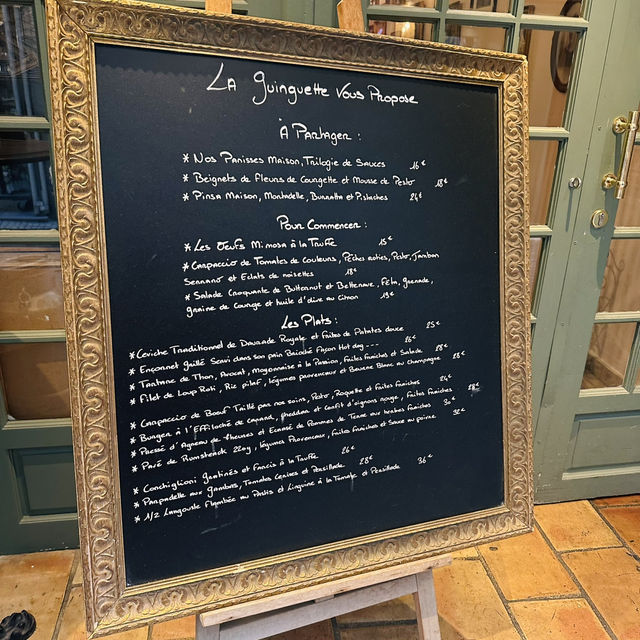 La Guinguette Vous Propose
À Partager :
* Nos Panisses Maison, Trilogie de Sauces 16€
* Beignets de Fleurs de Courgette et Mousse de Pesto 18€
* Pinsa Maison, Mortadelle, Burratta et Pistaches 24€
Pour Commencer :
* Les Oeufs Mimosa à la Truffe 15€
* Carpaccio de Tomates de Couleurs, Pêches roties, Pesto, Jambon
Serrano et Eclats de noisettes 18€
* Salade Croquante de Butternut et Betterave, Féta, Grenade,
graine de Courge et huile d'olive au Citron 19€
Les Plats :
* Ceviche Traditionnel de Daurade Royale et frites de Patates douce 25€
* Encornet grillé Servi dans son pain Brioché Façon Hot dog --- 26€
* Tartare de Thon, Avocat, mayonnaise à la Passion, frites fraiches et Salade 28€
* Filet de Loup Roti, Riz pilaf, légumes provencaux et Beurre Blanc au Champagne 28€
* Carpaccio de Boeuf Taillé par nos soins, Pesto, Roquette et frites fraiches 24€
* Burger à l'Effiloché de canard, cheddar et Confit d'oignons rouge, frites fraiches
* Pressé d'Agneau de 7heures et Ecrasé de Pommes de Terre aux herbes fraiches 30€
* Pavé de Rumsteack 220g, légumes Provencaux, frites fraiches et Sauce au poivre 32€
* Conchiglioni Gratinés et Farcis à la Truffe 26€
* Parpadelle aux Gambas, Tomates Cerises et Persillade 28€
* 1/2 Langouste Flambée au Pastis et Linguine à la Tomate et Persillade 36€